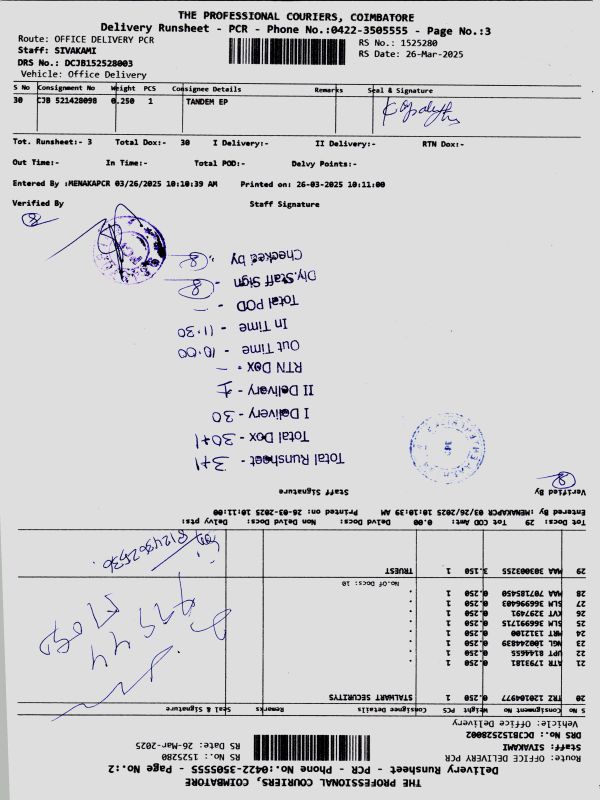 THE PROFESSIONAL COURIERS, COIMBATORE
Delivery Runsheet - PCR - Phone No.:0422-3505555 - Page No.:3
Route: OFFICE DELIVERY PCR
RS No.: 1525280
Staff: SIVAKAMI
RS Date: 26-Mar-2025
DRS No.: DCJB152528003
Vehicle: Office Delivery
S No Consignment No Weight PCS Consignee Details Remarks Seal & Signature
30 CJB 521428098 0.250 1 TANDEM EP
Tot. Runsheet:- 3 Total Dox:- 30 I Delivery:- II Delivery:- RTN Dox:-
Out Time:- In Time:- Total POD:- Delvy Points:-
Entered By :MENAKAPCR 03/26/2025 10:10:39 AM Printed on: 26-03-2025 10:11:00
Verified By Staff Signature
Total Runsheet - 3+1
Total Dox - 30+1
I Delivery - 30
II Delivery - 1
RTN Dox - -
Out Time - 10.00
In Time - 11.30
Total POD -
Dly.Staff Sign -
Checked by
THE PROFESSIONAL COURIERS, COIMBATORE
Delivery Runsheet - PCR - Phone No.:0422-3505555 - Page No.:2
Route: OFFICE DELIVERY PCR
RS No.: 1525280
Staff: SIVAKAMI
RS Date: 26-Mar-2025
DRS No.: DCJB152528002
Vehicle: Office Delivery
S No Consignment No Weight PCS Consignee Details Remarks Seal & Signature
20 TRZ 120104977 0.250 1 STALWART SECURITY
21 ATR 1793181 0.250 1 "
22 UPT 8144655 0.250 1 "
23 NGL 100244839 0.250 1 "
24 MRT 1312100 0.250 1 "
25 SLM 366991715 0.250 1 "
26 KVT 3297491 0.250 1 "
27 SLM 366996403 0.250 1 "
28 MAA 707185450 0.250 1 "
No.of Docs: 10
29 MAA 303003255 3.150 1 TRUEST
Tot Docs: 29 Tot COD Amt: 0.00 Delvd Docs: Non Delvd Docs: Delvy pts:
Entered By :MENAKAPCR 03/26/2025 10:10:39 AM Printed on: 26-03-2025 10:11:00
Verified By Staff Signature